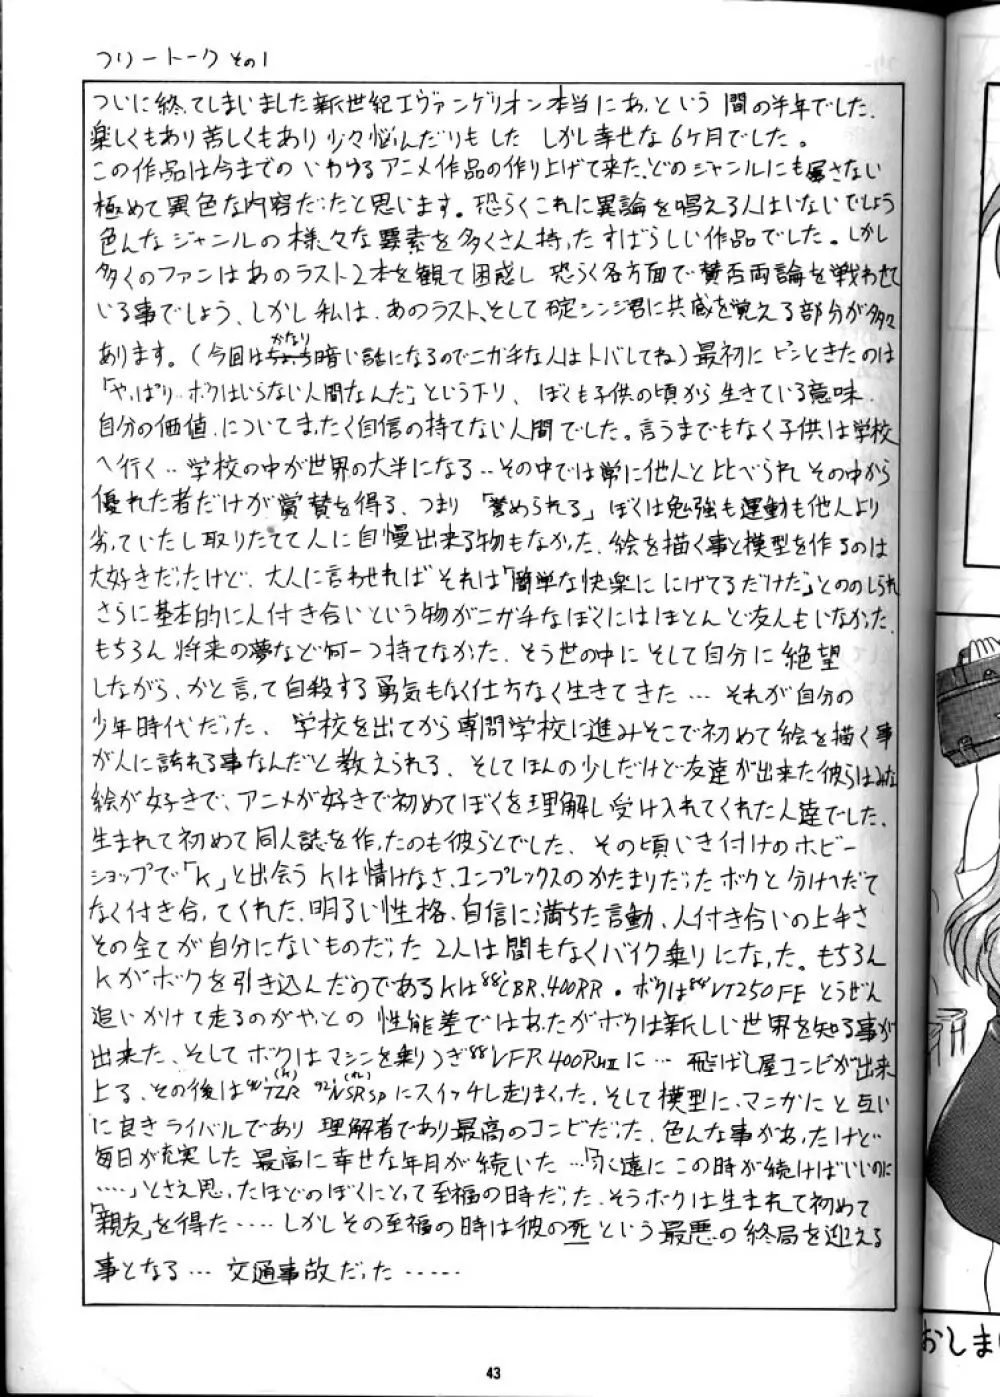 フリートーク その1
ついに終ってしまいました新世紀エヴァンゲリオン本当にあっという間の半年でした.
楽しくもあり苦しくもあり少々悩んだりもした しかし幸せな6ヶ月でした。
この作品は今までのいわゆるアニメ作品の作り上げて来た、どのジャンルにも属さない
極めて異色な内容だったと思います。恐らくこれに異論を唱える人はいないでしょう
色んなジャンルの様々な要素を多くさん持ったすばらしい作品でした。しかし
多くのファンはあのラスト2本を観て困惑し 恐らく各方面で賛否両論を戦わせて
いる事でしょう、しかし私は、あのラスト、そして碇シンジ君に共感を覚える部分が多々
あります。(今回はかなり暗い話になるのでニガ手な人はトバしてね)最初にピンときたのは
「やっぱり‥ボクはいらない人間なんだ」という下り、ぼくも子供の頃から生きている意味.
自分の価値.についてまったく自信の持てない人間でした。言うまでもなく子供は学校
へ行く‥学校の中が世界の大半になる‥その中では常に他人と比べられその中から
優れた者だけが賞賛を得る、つまり「誉められる」ぼくは勉強も運動も他人より
劣っていたし取りたてて人に自慢出来る物もなかった.絵を描く事と模型を作るのは
大好きだったけど、大人に言わせればそれは「簡単な快楽ににげてるだけだ」とののしられ
さらに基本的に人付き合いという物がニガ手なぼくにはほとんど友人もいなかった.
もちろん将来の夢など何一つ持てなかった.そう世の中にそして自分に絶望
しながら、かと言って自殺する勇気もなく仕方なく生きてきた…それが自分の
少年時代だった、学校を出てから専門学校に進みそこで初めて絵を描く事
が人に誇れる事なんだと教えられる、そしてほんの少しだけど友達が出来た彼らはみな
絵が好きで、アニメが好きで初めてぼくを理解し受け入れてくれた人達でした、
生まれて初めて同人誌を作ったのも彼らとでした、その頃いき付けのホビー
ショップで「K」と出会うKは情けなさ、コンプレックスのかたまりだったボクと分けへだて
なく付き合ってくれた.明るい性格.自信に満ちた言動、人付き合いの上手さ
その全てが自分にないものだった 2人は間もなくバイク乗りになった。もちろん
Kがボクを引き込んだのであるKは'88CBR.400RR・ボクは'88VT250FEとうぜん
追いかけて走るのがやっとの性能差ではあったがボクは新しい世界を知る事が
出来た、そしてボクはマシンを乗りつぎ'88VFR400Rに…飛ばし屋コンビが出来
上る、その後は'90TZR(K) '92NSRSP(ボ)にスイッチし走りまくった.そして模型に、マンガにと互い
に良きライバルであり理解者であり最高のコンビだった.色んな事があったけど
毎日が充実した最高に幸せな年月が続いた…「永遠にこの時が続けばいいのに
‥‥」とさえ思ったほどのぼくにとって至福の時だった.そうボクは生まれて初めて
「親友」を得た‥‥しかしその至福の時は彼の死という最悪の終局を迎える
事となる…交通事故だった‥‥‥
43
おしまい